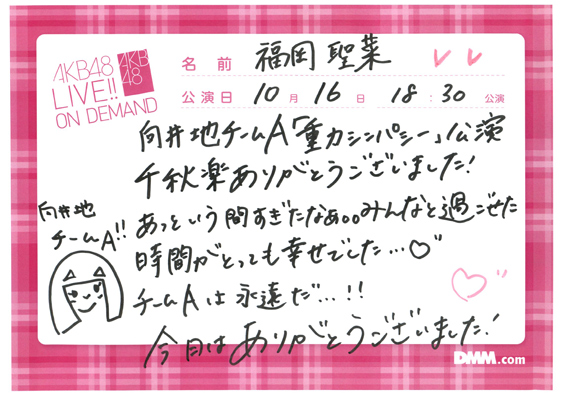 AKB48
LIVE!!
ON DEMAND
AKB
48
名前 福岡 聖菜
公演日 10月16日 18:30公演
向井地チームA「重力シンパシー」公演
千秋楽ありがとうございました!
あっという間すぎたなぁ。。みんなと過ごせた
時間がとっても幸せでした…♡
チームAは永遠だ…!!
今日はありがとうございました!
向井地
チームA!!
DMM.com